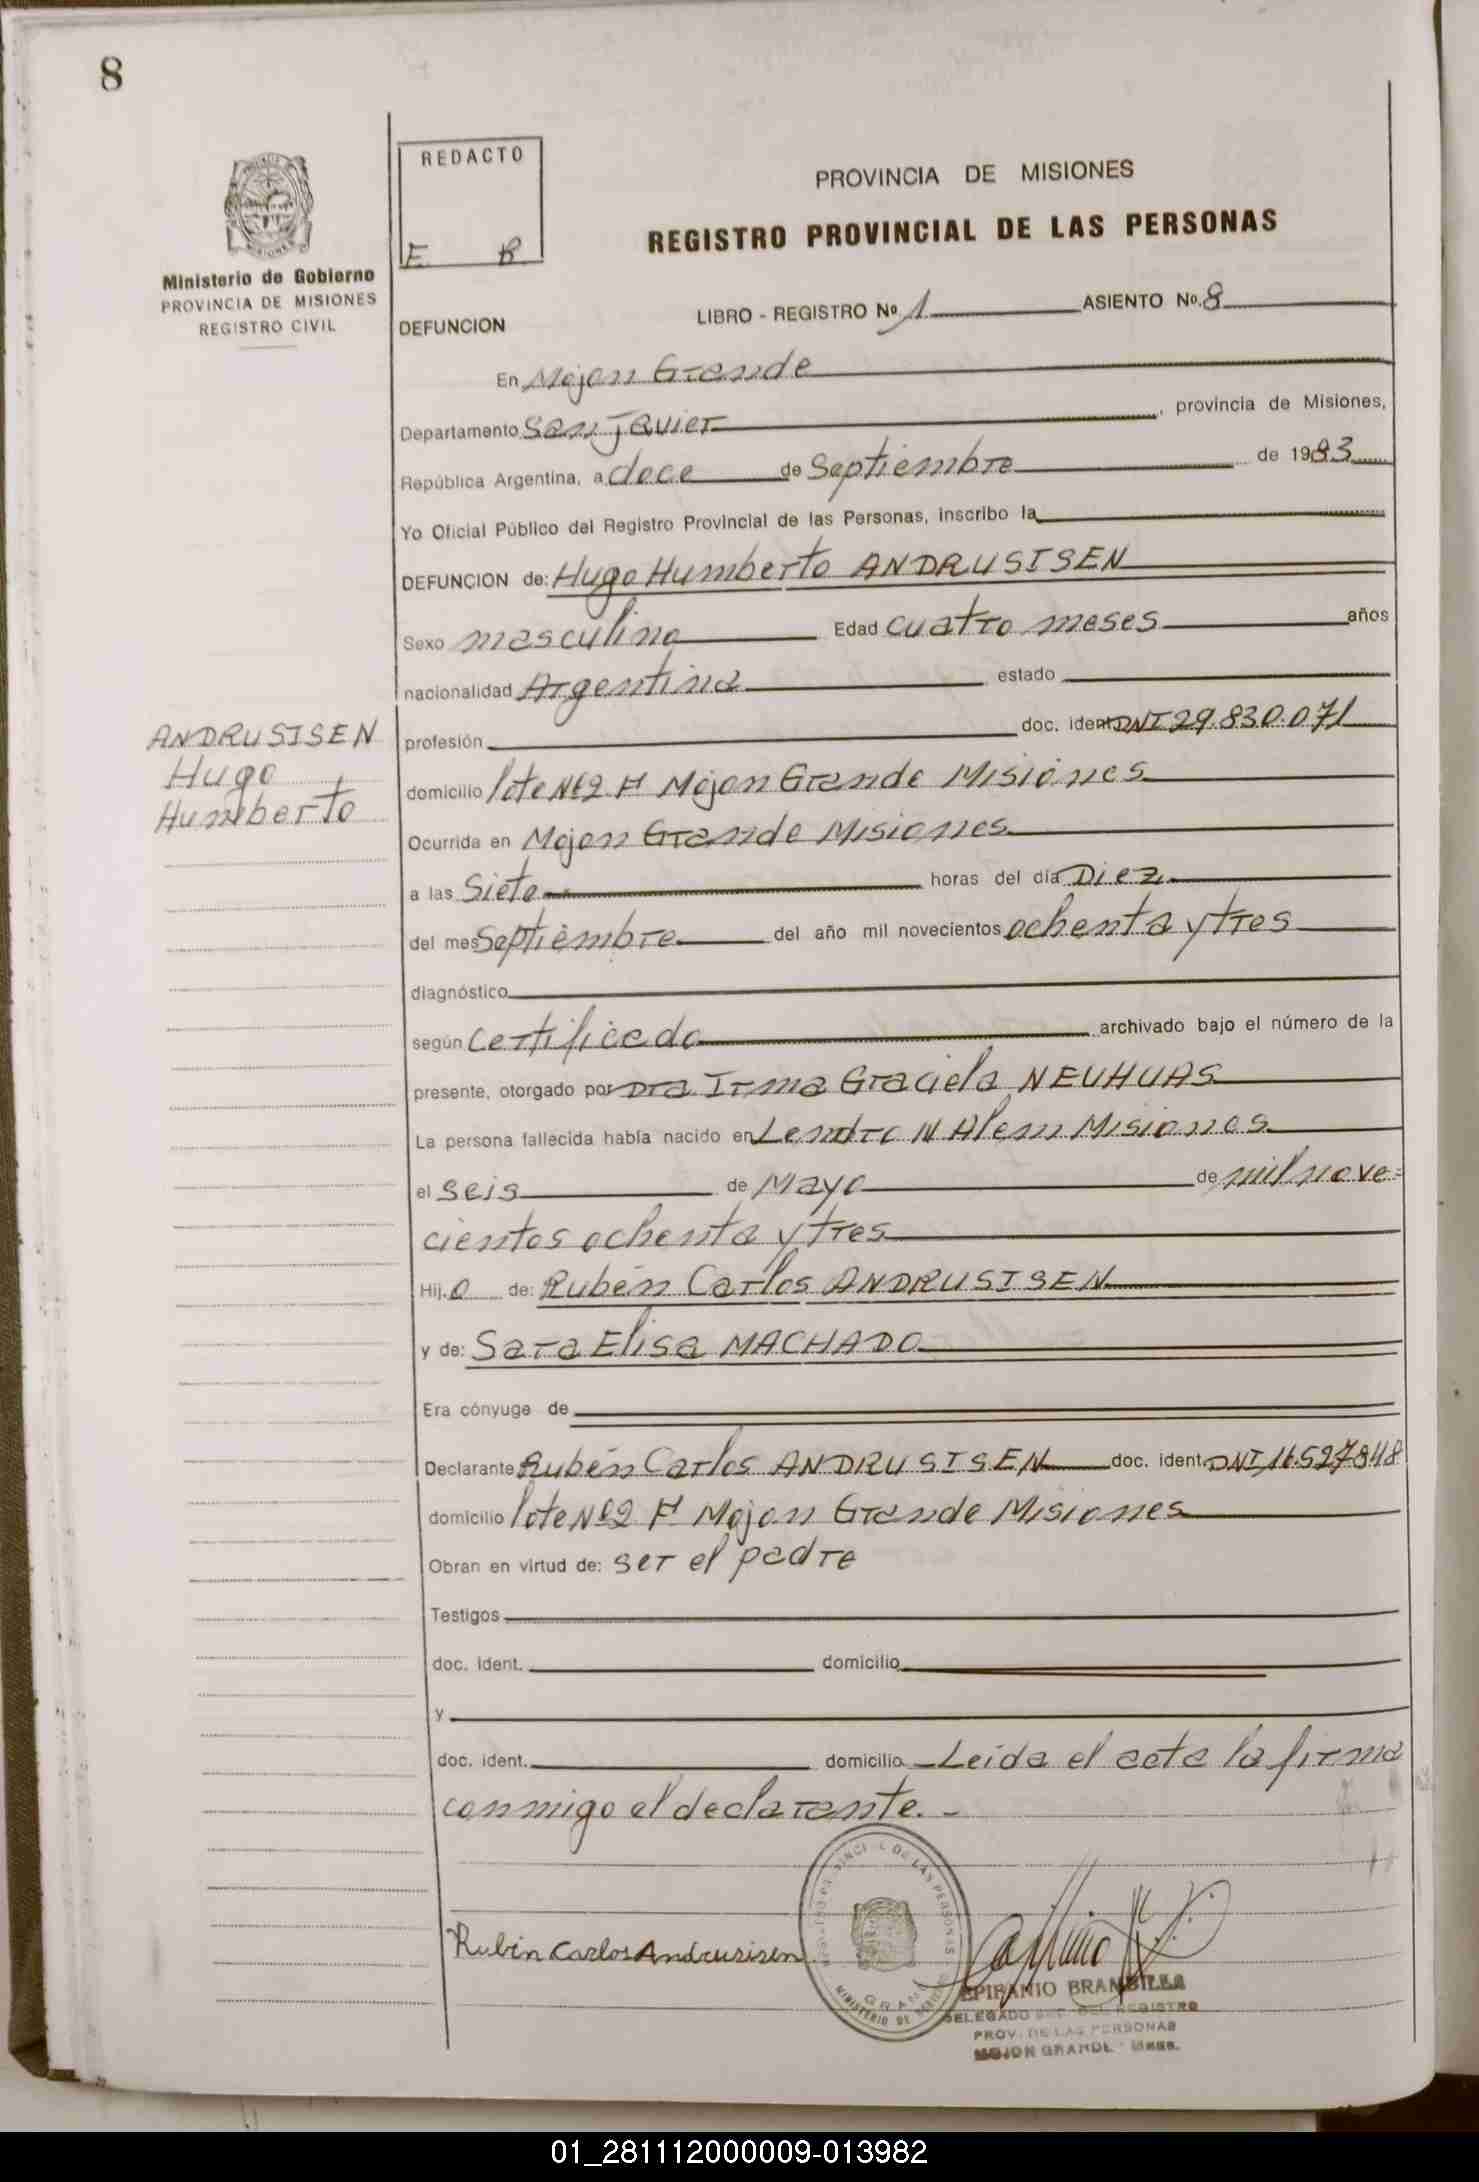 8
REDACTO
E. R
Ministerio de Gobierno
PROVINCIA DE MISIONES
REGISTRO CIVIL
PROVINCIA DE MISIONES
REGISTRO PROVINCIAL DE LAS PERSONAS
DEFUNCION
LIBRO - REGISTRO Nº 1 ASIENTO Nº. 8
En Mojon Grande
Departamento San Javier, provincia de Misiones,
República Argentina, a doce de Septiembre de 1983
Yo Oficial Público del Registro Provincial de las Personas, inscribo la
DEFUNCION de: Hugo Humberto ANDRUSISEN
Sexo masculino Edad cuatro meses años
nacionalidad Argentina estado
ANDRUSISEN
Hugo
Humberto
profesión doc. ident. DNI 29.830.071
domicilio lote Nº2 H Mojon Grande Misiones
Ocurrida en Mojon Grande Misiones
a las Siete horas del día Diez
del mes Septiembre del año mil novecientos ochenta y tres
diagnóstico
según Certificado archivado bajo el número de la
presente, otorgado por Dra Irma Graciela NEUHUAS
La persona fallecida había nacido en Lendro N Alem Misiones
el seis de Mayo de mil nove=
cientos ochenta y tres
Hij.o de: Rubén Carlos ANDRUSISEN
y de: Sara Elisa MACHADO
Era cónyuge de
Declarante Rubén Carlos ANDRUSISEN doc. ident. DNI 16.527848
domicilio lote Nº2 H Mojon Grande Misiones
Obran en virtud de: ser el padre
Testigos
doc. ident. domicilio
y
doc. ident. domicilio - Leída el acta la firma
conmigo el declarante. -
Rubén Carlos Andrusisen
EPIRANIO BRAMBILLA
DELEGADO DEL REGISTRO
PROV. DE LAS PERSONAS
MOJON GRANDE - Mnes.
01_281112000009-013982